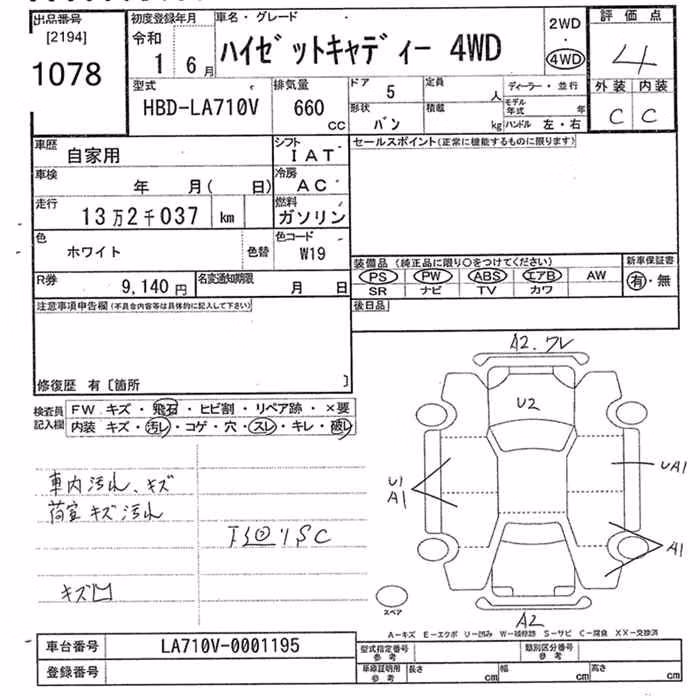 出品番号
[2194]
1078
初度登録年月
令和
1 6月
車名・グレード
ハイゼットキャディー 4WD
2WD
・
4WD
評価点
4
外装 内装
C C
型式
HBD-LA710V
排気量
660
CC
ドア
5
形状
バン
定員
人
積載
kg
ディーラー・並行
モデル年式 年
ハンドル 左・右
車歴
自家用
シフト
IAT
車検
年 月( 日)
冷房
AC
走行
13万2千037 km
燃料
ガソリン
色
ホワイト
色替
色コード
W19
R券
9,140円
名変通知期限
月 日
セールスポイント(正常に機能するものに限ります)
装備品(純正品に限り○をつけてください)
PS PW ABS エアB AW
SR ナビ TV カワ
新車保証書
有・無
後日品
注意事項申告欄(不具合内容等は具体的に記入して下さい)
修復歴 有〔箇所 〕
検査員記入欄
FW キズ・飛石・ヒビ割・リペア跡・×要
内装 キズ・汚レ・コゲ・穴・スレ・キレ・破レ
車内汚れ、キズ
荷室キズ汚れ
キズ
A2.ワレ
U2
U1
A1
UA1
A1
A2
スペア
A-キズ E-エクボ U-凹み W-補修跡 S-サビ C-腐食 XX-交換済
車台番号
LA710V-0001195
登録番号
型式指定番号
参考
類別区分番号
参考
車庫証明用
参考
長さ cm
幅 cm
高さ cm